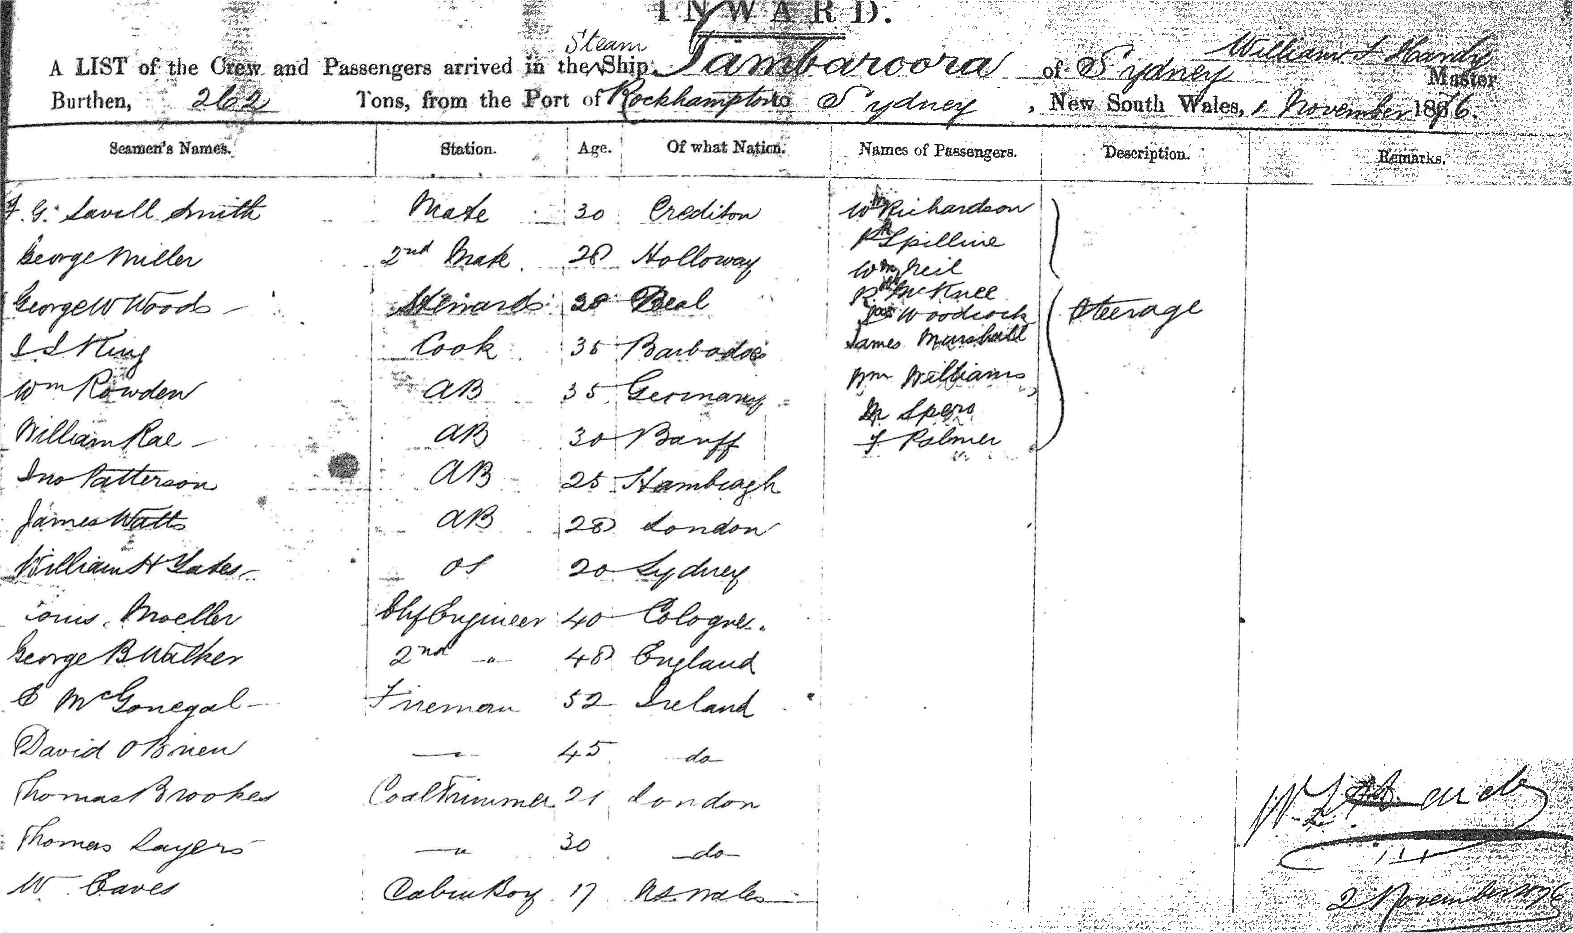 INWARD.
Steam William L Hardy
A LIST of the Crew and Passengers arrived in the Ship Tambaroora of Sydney Master
Burthen, 262 Tons, from the Port of Rockhampton to Sydney, New South Wales, 1 November 1876.
Seamen's Names. Station. Age. Of what Nation. Names of Passengers. Description. Remarks.
F. G. Savill Smith Mate 30 Crediton Wm Richardson
George Miller 2nd Mate 28 Holloway Spilline
Wm Neil
George W Woods Steward 28 Deal R. McKnee
Woodcock Steerage
J J King Cook 35 Barbadoes James Marshall
Wm Rowden AB 35 Germany Wm Williams
Spero
William Rae AB 30 Banff F Palmer
Jno Patterson AB 25 Hambragh
James Watts AB 28 London
William H Yates OS 20 Sydney
Moeller Chf Engineer 40 Cologne.
George B Walker 2nd " 48 England
E McGonegal Fireman 52 Ireland
David O'Brien " 45 do
Thomas Brookes Coal Trimmer 21 London
Thomas Sayers " 30 do
W Eaves Cabin Boy 17 N S Wales
2 November 1876